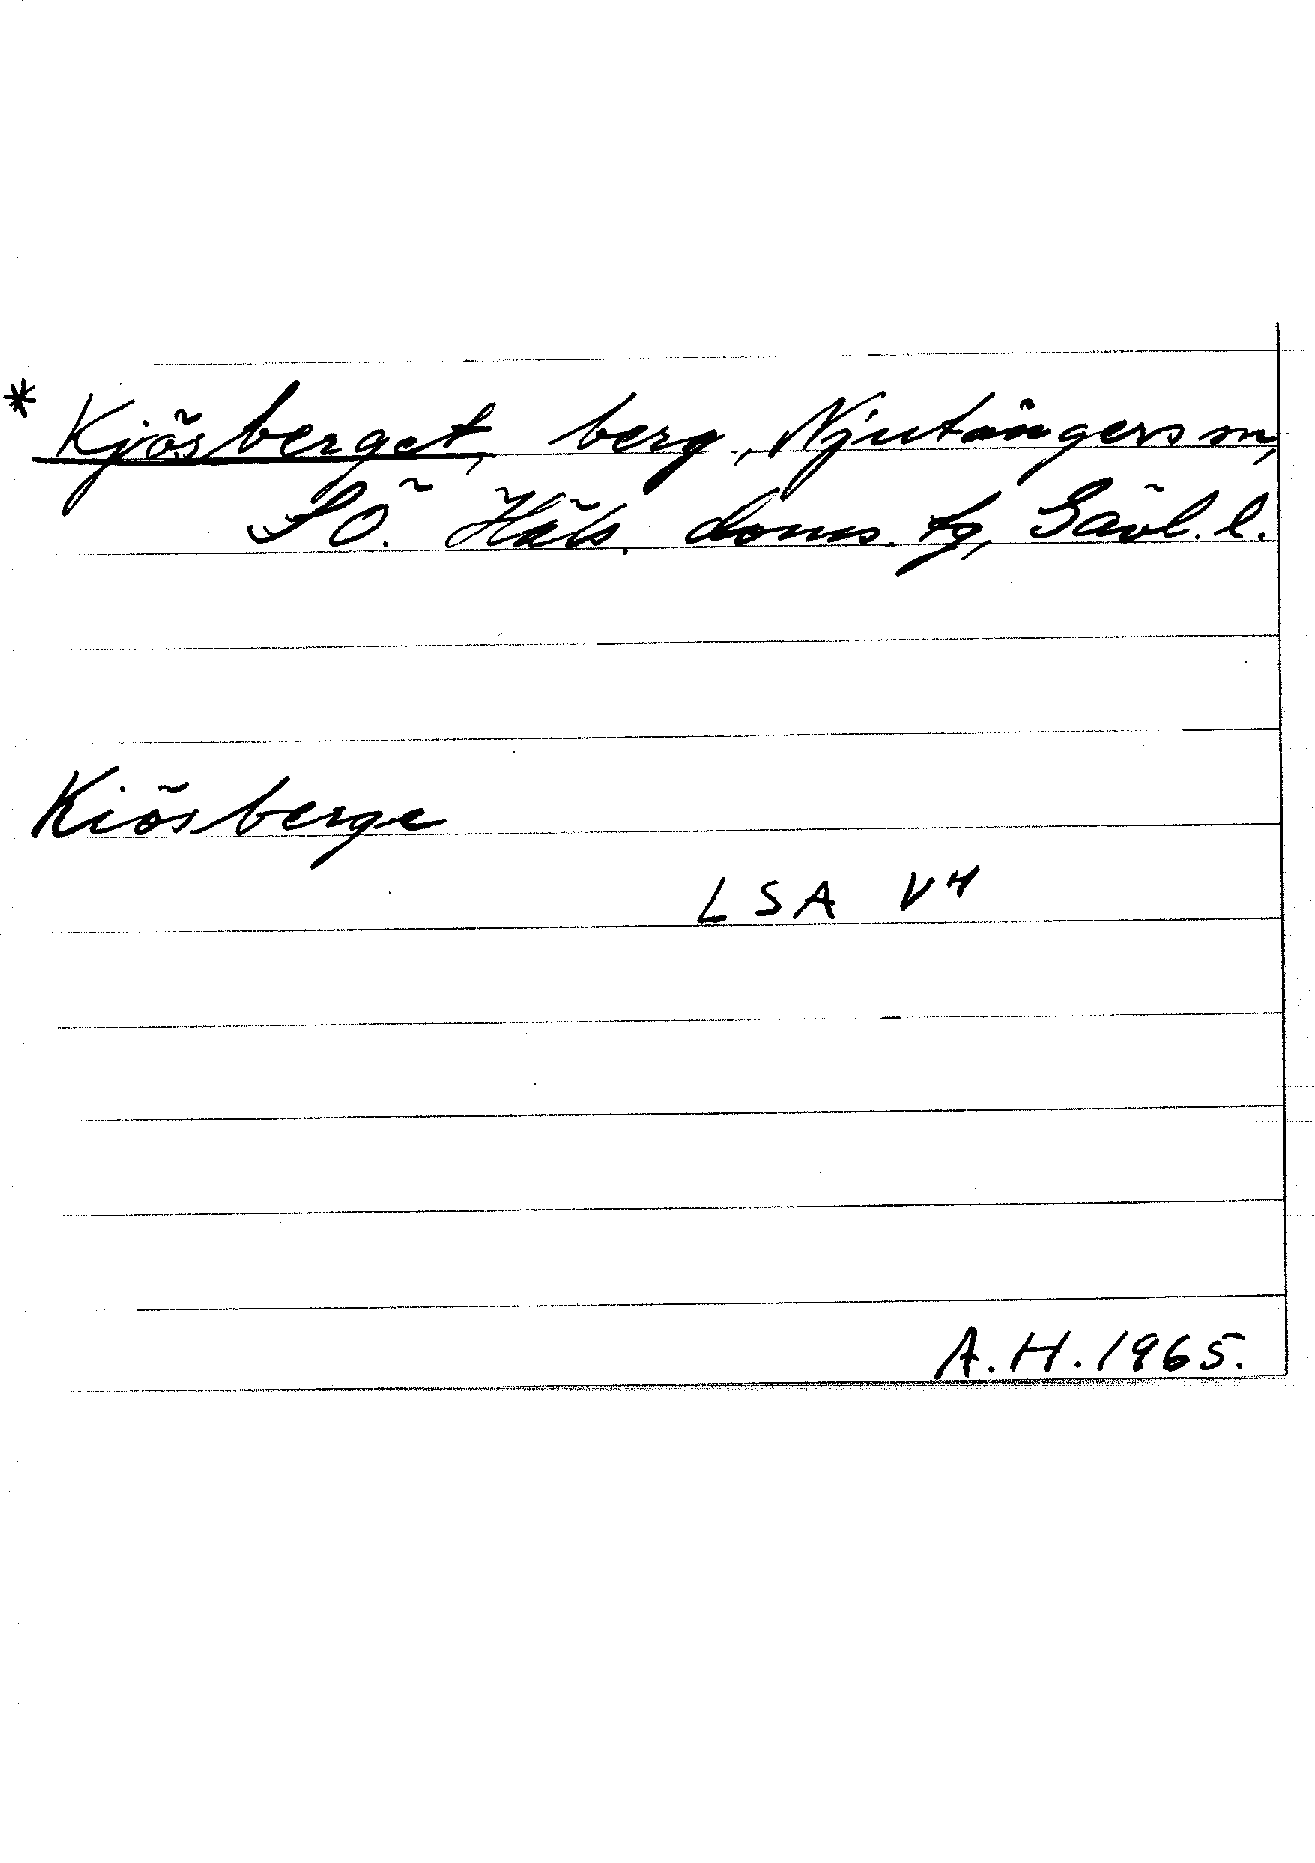 * Kjösberget, berg, Njutångers sn,
SÖ. Häls. doms. tg, Gävl. l.
Kiösberge
LSA V4
A.H. 1965.